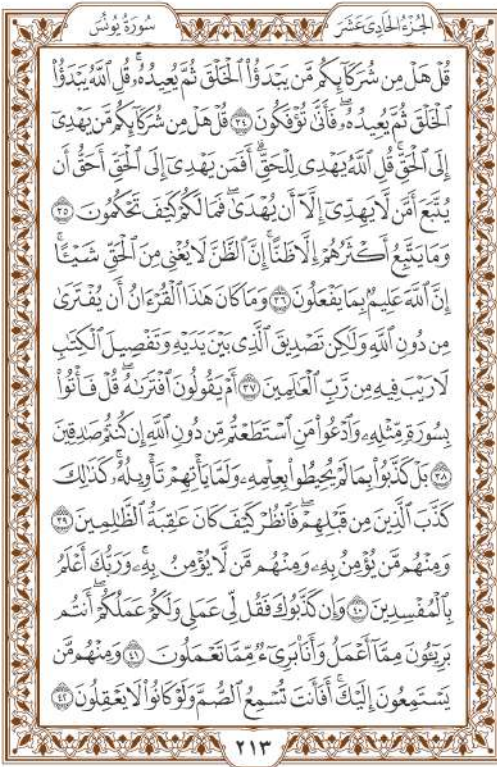 الجُزْءُ الحَادِى عَشَرَ
سُورَةُ يُونُسَ
قُلْ هَلْ مِن شُرَكَآئِكُم مَّن يَبْدَؤُاْ ٱلْخَلْقَ ثُمَّ يُعِيدُهُۥۚ قُلِ ٱللَّهُ يَبْدَؤُاْ
ٱلْخَلْقَ ثُمَّ يُعِيدُهُۥۖ فَأَنَّىٰ تُؤْفَكُونَ ٣٤ قُلْ هَلْ مِن شُرَكَآئِكُم مَّن يَهْدِىٓ
إِلَى ٱلْحَقِّۚ قُلِ ٱللَّهُ يَهْدِى لِلْحَقِّۗ أَفَمَن يَهْدِىٓ إِلَى ٱلْحَقِّ أَحَقُّ أَن
يُتَّبَعَ أَمَّن لَّا يَهِدِّىٓ إِلَّآ أَن يُهْدَىٰۖ فَمَا لَكُمْ كَيْفَ تَحْكُمُونَ ٣٥
وَمَا يَتَّبِعُ أَكْثَرُهُمْ إِلَّا ظَنًّاۚ إِنَّ ٱلظَّنَّ لَا يُغْنِى مِنَ ٱلْحَقِّ شَيْـًٔاۚ
إِنَّ ٱللَّهَ عَلِيمٌۢ بِمَا يَفْعَلُونَ ٣٦ وَمَا كَانَ هَٰذَا ٱلْقُرْءَانُ أَن يُفْتَرَىٰ
مِن دُونِ ٱللَّهِ وَلَٰكِن تَصْدِيقَ ٱلَّذِى بَيْنَ يَدَيْهِ وَتَفْصِيلَ ٱلْكِتَٰبِ
لَا رَيْبَ فِيهِ مِن رَّبِّ ٱلْعَٰلَمِينَ ٣٧ أَمْ يَقُولُونَ ٱفْتَرَىٰهُۖ قُلْ فَأْتُواْ
بِسُورَةٍ مِّثْلِهِۦ وَٱدْعُواْ مَنِ ٱسْتَطَعْتُم مِّن دُونِ ٱللَّهِ إِن كُنتُمْ صَٰدِقِينَ
٣٨ بَلْ كَذَّبُواْ بِمَا لَمْ يُحِيطُواْ بِعِلْمِهِۦ وَلَمَّا يَأْتِهِمْ تَأْوِيلُهُۥۚ كَذَٰلِكَ
كَذَّبَ ٱلَّذِينَ مِن قَبْلِهِمْۖ فَٱنظُرْ كَيْفَ كَانَ عَٰقِبَةُ ٱلظَّٰلِمِينَ ٣٩
وَمِنْهُم مَّن يُؤْمِنُ بِهِۦ وَمِنْهُم مَّن لَّا يُؤْمِنُ بِهِۦۚ وَرَبُّكَ أَعْلَمُ
بِٱلْمُفْسِدِينَ ٤٠ وَإِن كَذَّبُوكَ فَقُل لِّى عَمَلِى وَلَكُمْ عَمَلُكُمْۖ أَنتُم
بَرِيٓـُٔونَ مِمَّآ أَعْمَلُ وَأَنَا۠ بَرِىٓءٌ مِّمَّا تَعْمَلُونَ ٤١ وَمِنْهُم مَّن
يَسْتَمِعُونَ إِلَيْكَۚ أَفَأَنتَ تُسْمِعُ ٱلصُّمَّ وَلَوْ كَانُواْ لَا يَعْقِلُونَ ٤٢
٢١٣